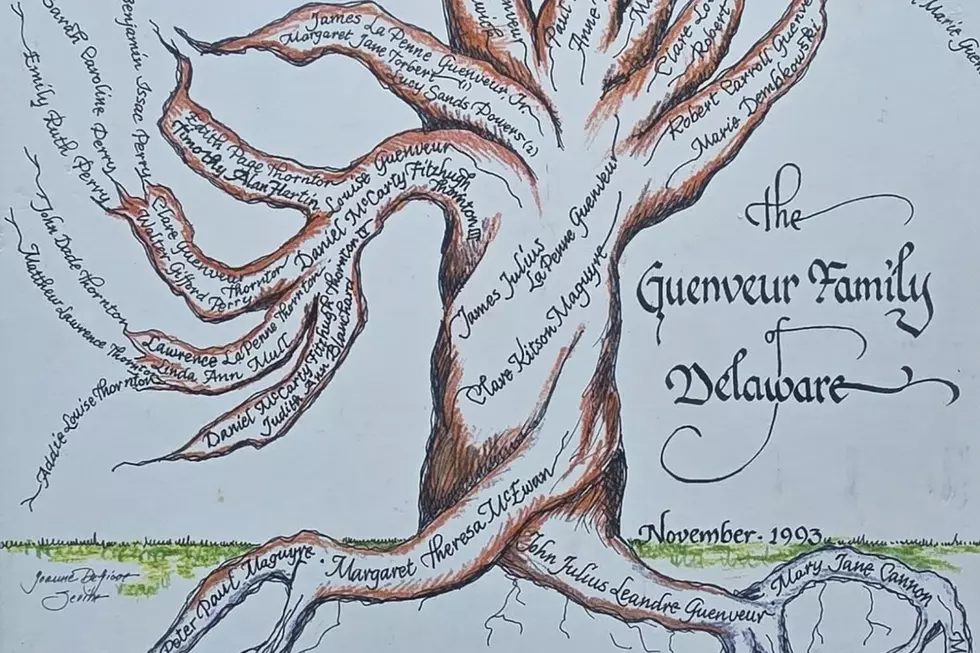 Sarah Caroline Perry
Benjamin Issac Perry
Emily Ruth Perry
James La Penne Guenveur Jr.
Margaret Jane Torbert (1)
Lucy Sands Powers (2)
Paul
Anne
Claire
Robert
Robert Carroll Guenveur
Marie Dembkowski
Marie
Edith Page Thornton
Timothy Alan Martin
Louise Guenveur
Daniel McCarty Fitzhugh
Thornton III
Clare Guenveur
Thornton
Walter Gifford Perry
John Dode Thornton
Matthew Lawrence Thornton
Addie Louise Thornton
Lawrence LaPenne Thornton
Linda Ann Mutt
Daniel McCarty Fitzhugh Thornton IV
Judith Ann Blanchard
James Julius
La Penne Guenveur
Clare Kitson Maguyre
the
Guenveur Family
of
Delaware
November · 1993
Margaret Theresa McEwan
Peter Paul Maguyre
John Julius Leandre Guenveur
Mary Jane Cannon